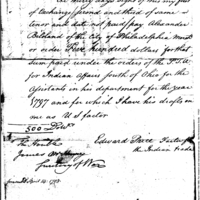 At thirty days sight of this my first
of Exchange Second and third of same
tenor and date not paid pay Alexander
Bitland of the City of Philadelphia Mer or
order Five hundred dollars for that
sum paid under the orders of the P.S.A
for Indian Affairs South of Ohio for the
Assistants in his department for the year
1797 and for which I have his dr on
me as U S factor
500 Dolrs
The Honble
Edward Price Factor
James McHenry
the Indian trade
Secretary of War